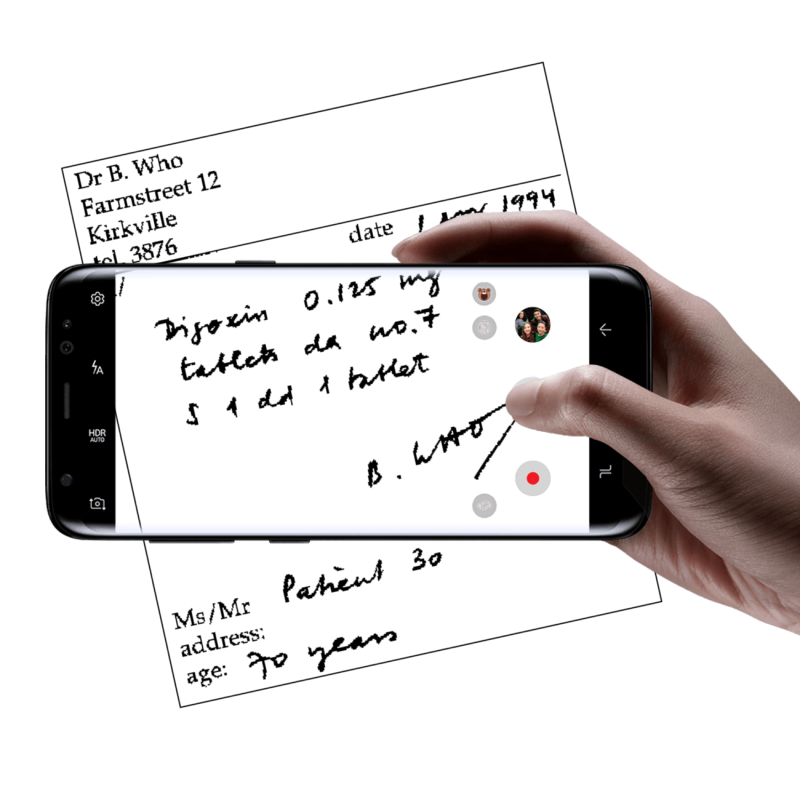 Dr B. Who
Farmstreet 12
Kirkville
tel. 3876
date 1 1994
Digoxin 0.125 mg
tablets da no. 7
S 1 dd 1 tablet
B. WHO
HDR
AUTO
Ms/Mr Patient 30
address:
age: 70 years